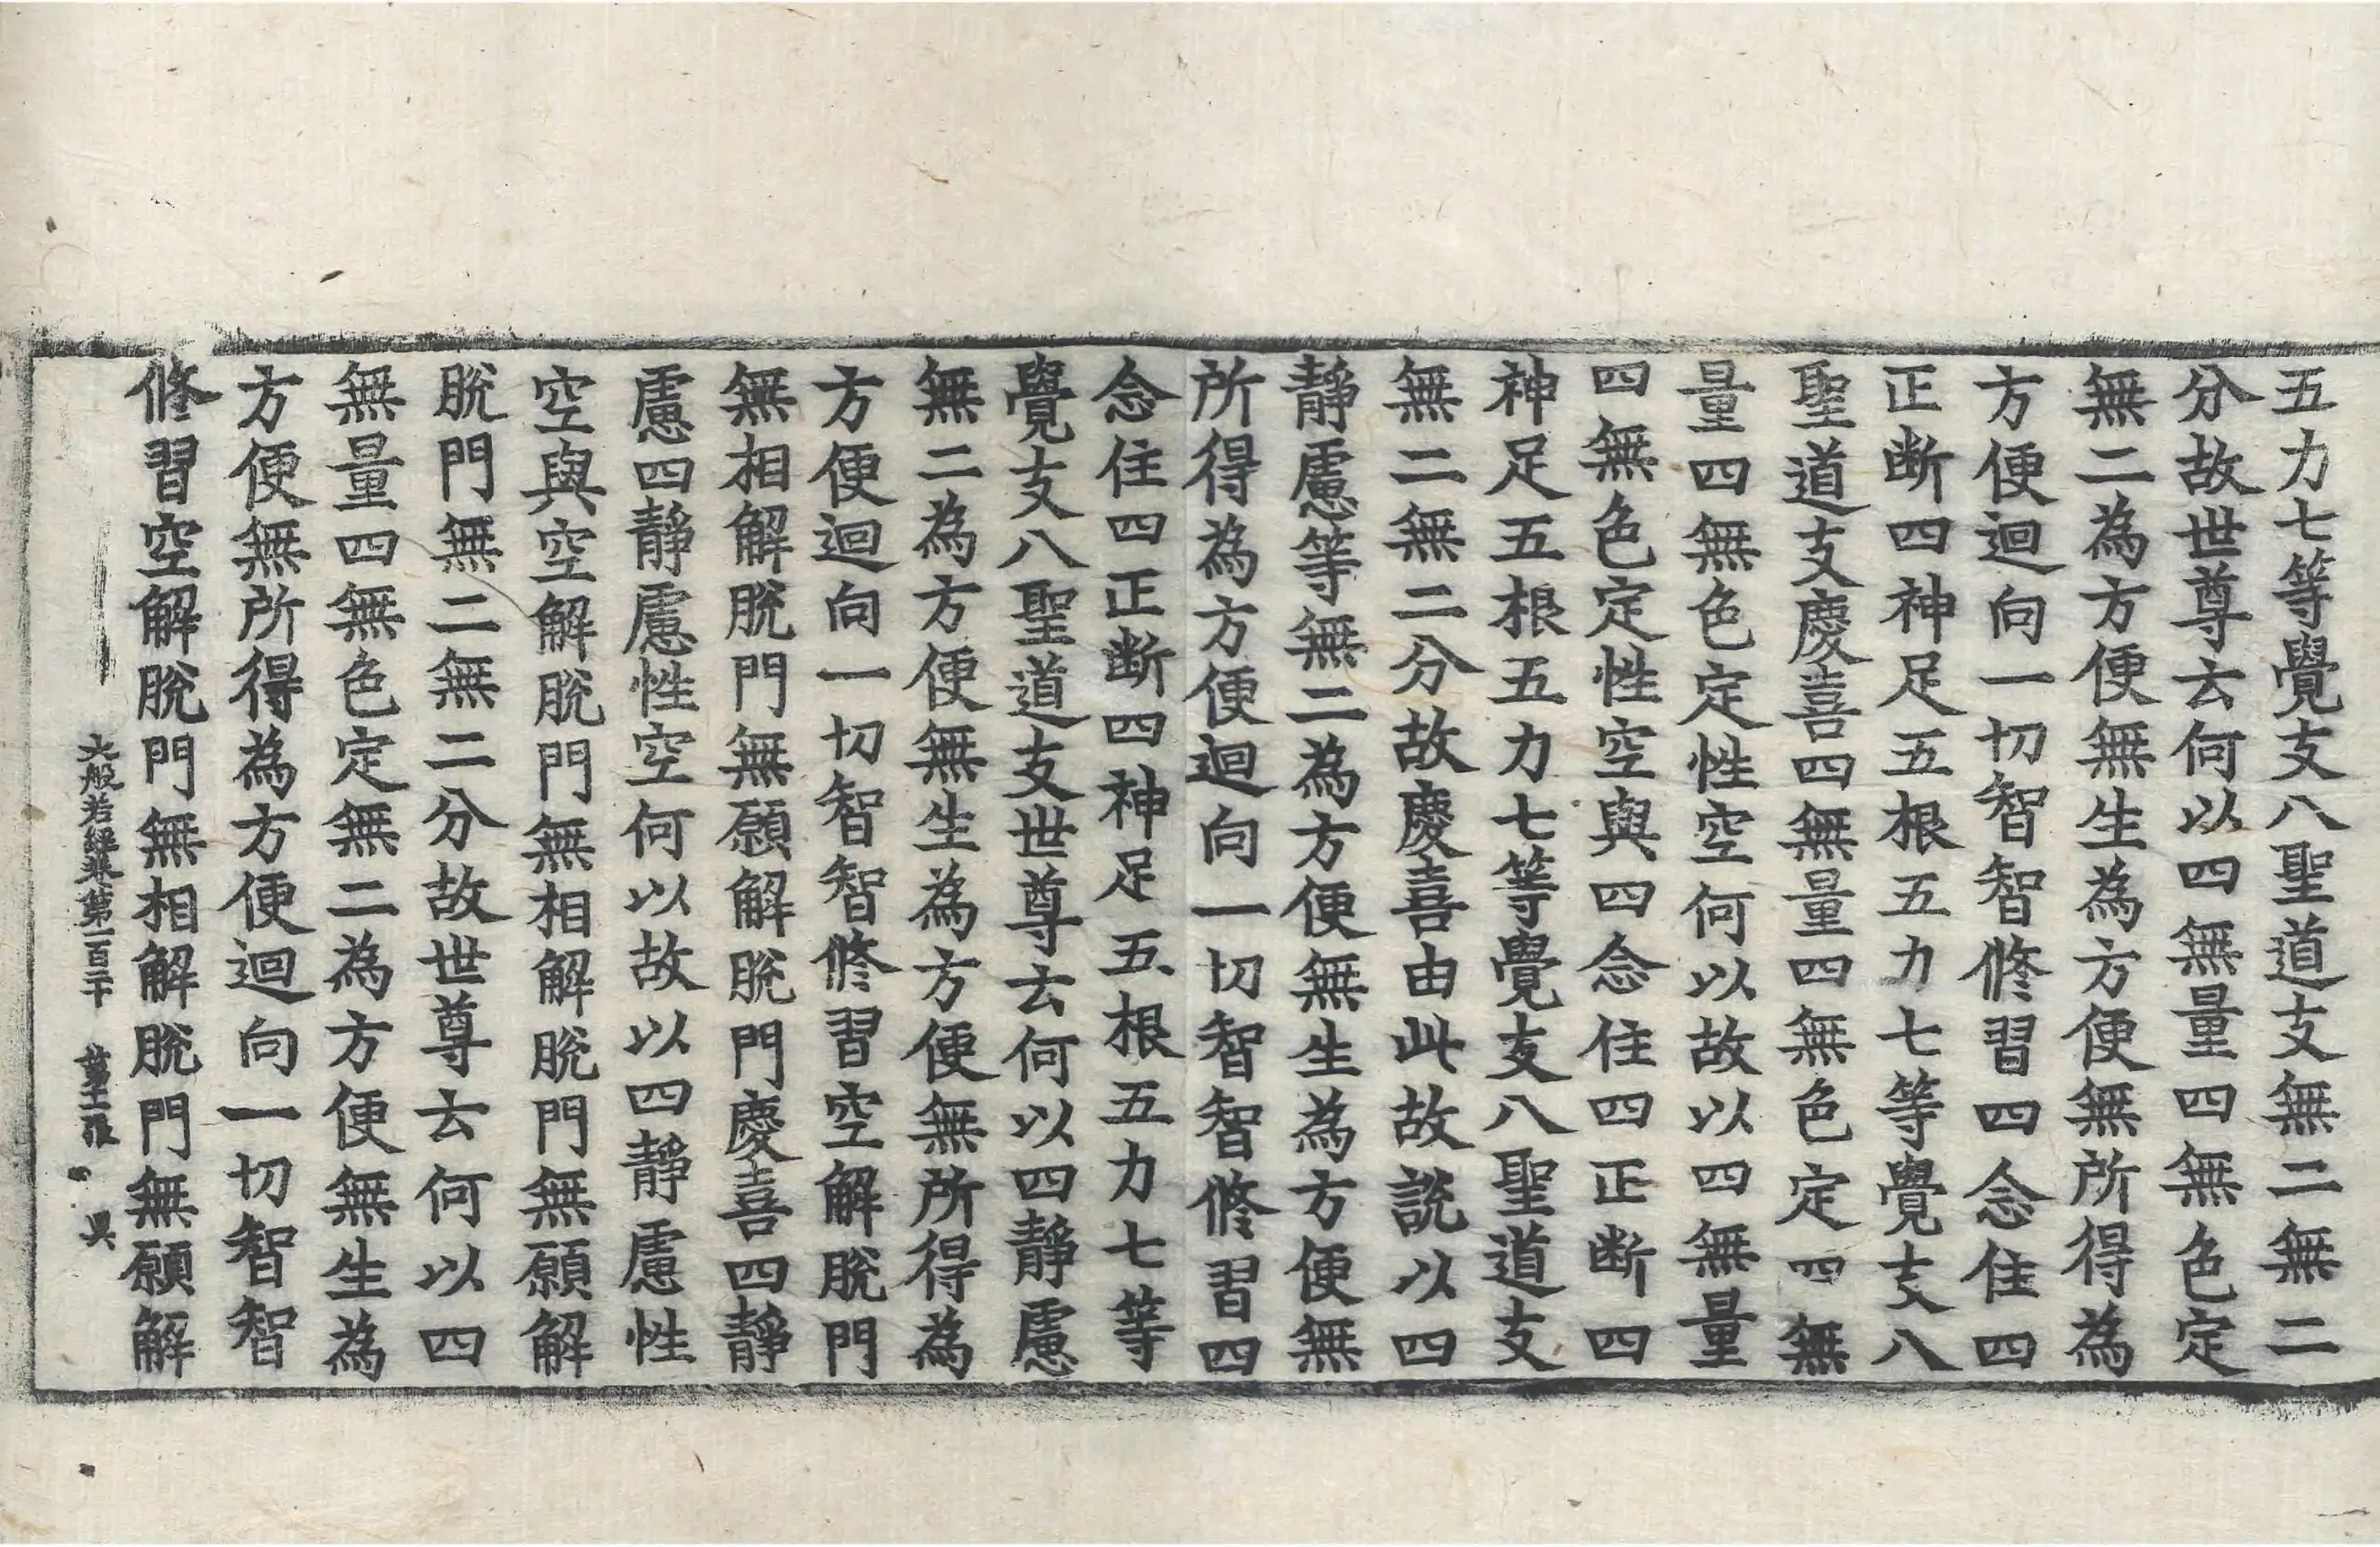 五力七等覺支八聖道支無二無二
分故世尊云何以四無量四無色定
無二為方便無生為方便無所得為
方便迴向一切智智修習四念住四
正断四神足五根五力七等覺支八
聖道支慶喜四無量四無色定四無
量四無色定性空何以故以四無量
四無色定性空與四念住四正断四
神足五根五力七等覺支八聖道支
無二無二分故慶喜由此故說以四
靜慮等無二為方便無生為方便無
所得為方便迴向一切智智修習四
念住四正断四神足五根五力七等
覺支八聖道支世尊云何以四靜慮
無二為方便無生為方便無所得為
方便迴向一切智智修習空解脫門
無相解脫門無願解脫門慶喜四靜
慮四靜慮性空何以故以四靜慮性
空與空解脫門無相解脫門無願解
脫門無二無二分故世尊云何以四
無量四無色定無二為方便無生為
方便無所得為方便迴向一切智智
修習空解脫門無相解脫門無願解
大般若經卷第一百二十 第十二張